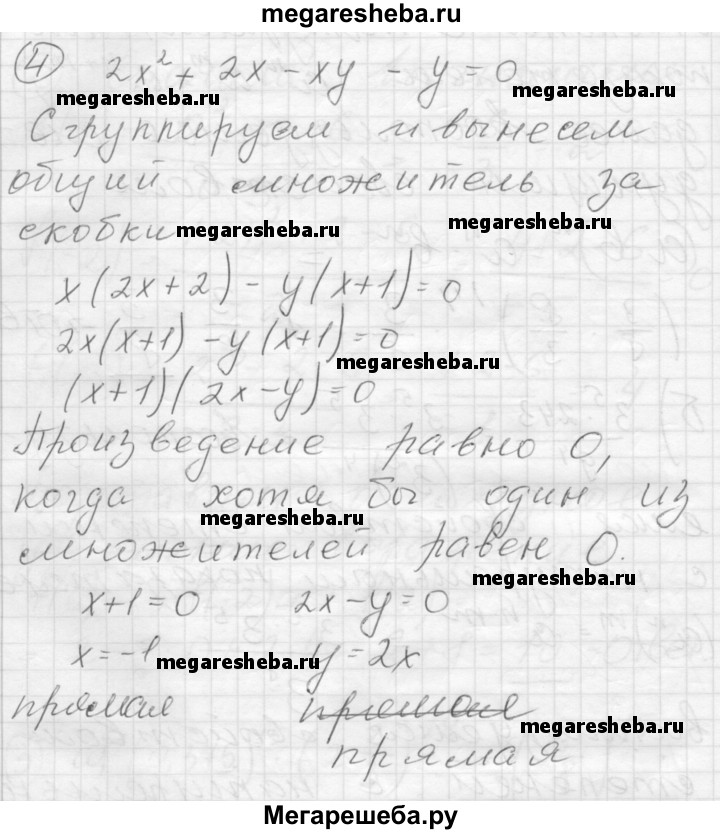 megaresheba.ru
④ 2x² + 2x - xy - y = 0
megaresheba.ru megaresheba.ru
Сгруппируем и вынесем
общий множитель за
скобки megaresheba.ru megaresheba.ru
x(2x+2) - y(x+1) = 0
2x(x+1) - y(x+1) = 0
megaresheba.ru
(x+1)(2x-y) = 0
Произведение равно 0,
когда хотя бы один из
megaresheba.ru
множителей равен 0.
megaresheba.ru
x+1=0 2x-y=0
x=-1 megaresheba.ru y=2x
прямая прямая
megaresheba.ru
прямая
Мегарешеба.ру